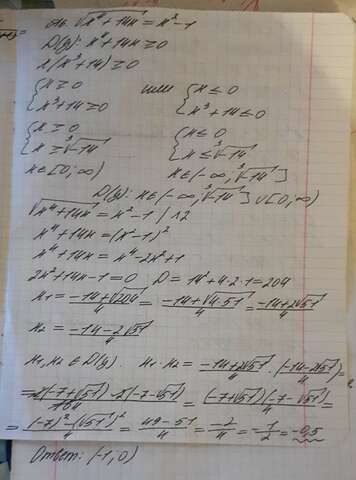 √x⁴+14x = x²-1
D(y): x⁴+14x≥0
x(x³+14)≥0
{x≥0 или {x≤0
x³+14≥0 x³+14≤0
{x≥0 {x≤0
x≥∛-14 x≤∛-14
x∈[0;∞) x∈(-∞;∛-14]
D(y): x∈(-∞;∛-14]∪[0;∞)
√x⁴+14x = x²-1 |^2
x⁴+14x=(x²-1)²
x⁴+14x=x⁴-2x²+1
2x²+14x-1=0 D=14²+4·2·1=204
x1=(-14+√204)/4=(-14+√4·51)/4=(-14+2√51)/4
x2=(-14-2√51)/4
x1,x2∈D(y). x1·x2=(-14+2√51)/4·(-14-2√51)/4=
=2(-7+√51)·2(-7-√51)/=(-7+√51)(-7-√51)/4=
=((-7)²-(√51)²)/4=(49-51)/4=-2/4=-1/2=-0,5
Ответ: (-1,0)